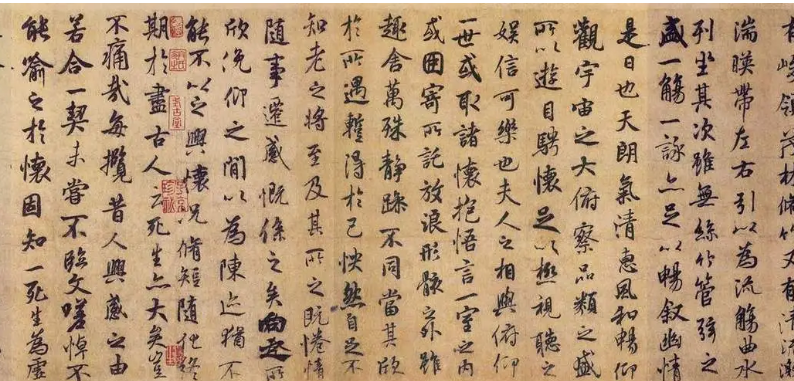 有峻領茂林脩竹又有清流激
湍暎帶左右引以為流觴曲水
列坐其次雖無絲竹管弦之
盛一觴一詠亦足以暢敘幽情
是日也天朗氣清惠風和暢仰
觀宇宙之大俯察品類之盛
所以遊目騁懷足以極視聽之
娛信可樂也夫人之相與俯仰
一世或取諸懷抱悟言一室之內
或因寄所託放浪形骸之外雖
趣舍萬殊靜躁不同當其欣
於所遇蹔得於己怏然自足不
知老之將至及其所之既惓情
隨事遷感慨係之矣向之所
欣俛仰之間以為陳迹猶不
能不以之興懷況脩短隨化終
期於盡古人云死生亦大矣豈
不痛哉每攬昔人興感之由
若合一契未嘗不臨文嗟悼不
能喻之於懷固知一死生為虛